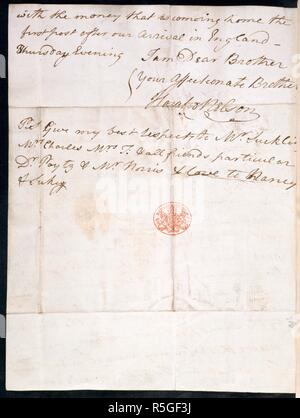 with the money that is coming home the
first post after our arrival in England -
Thursday Evening I am Dear Brother
Your Affectionate Brother
Horatio Nelson
Give my best respects to Mr. Suckling
Mrs. Charles Mrs. & all friends particular
Dr. Poyntz & Mr. Norris & Love to
& Sukey
alamy
Image ID: R5GF3J
www.alamy.com